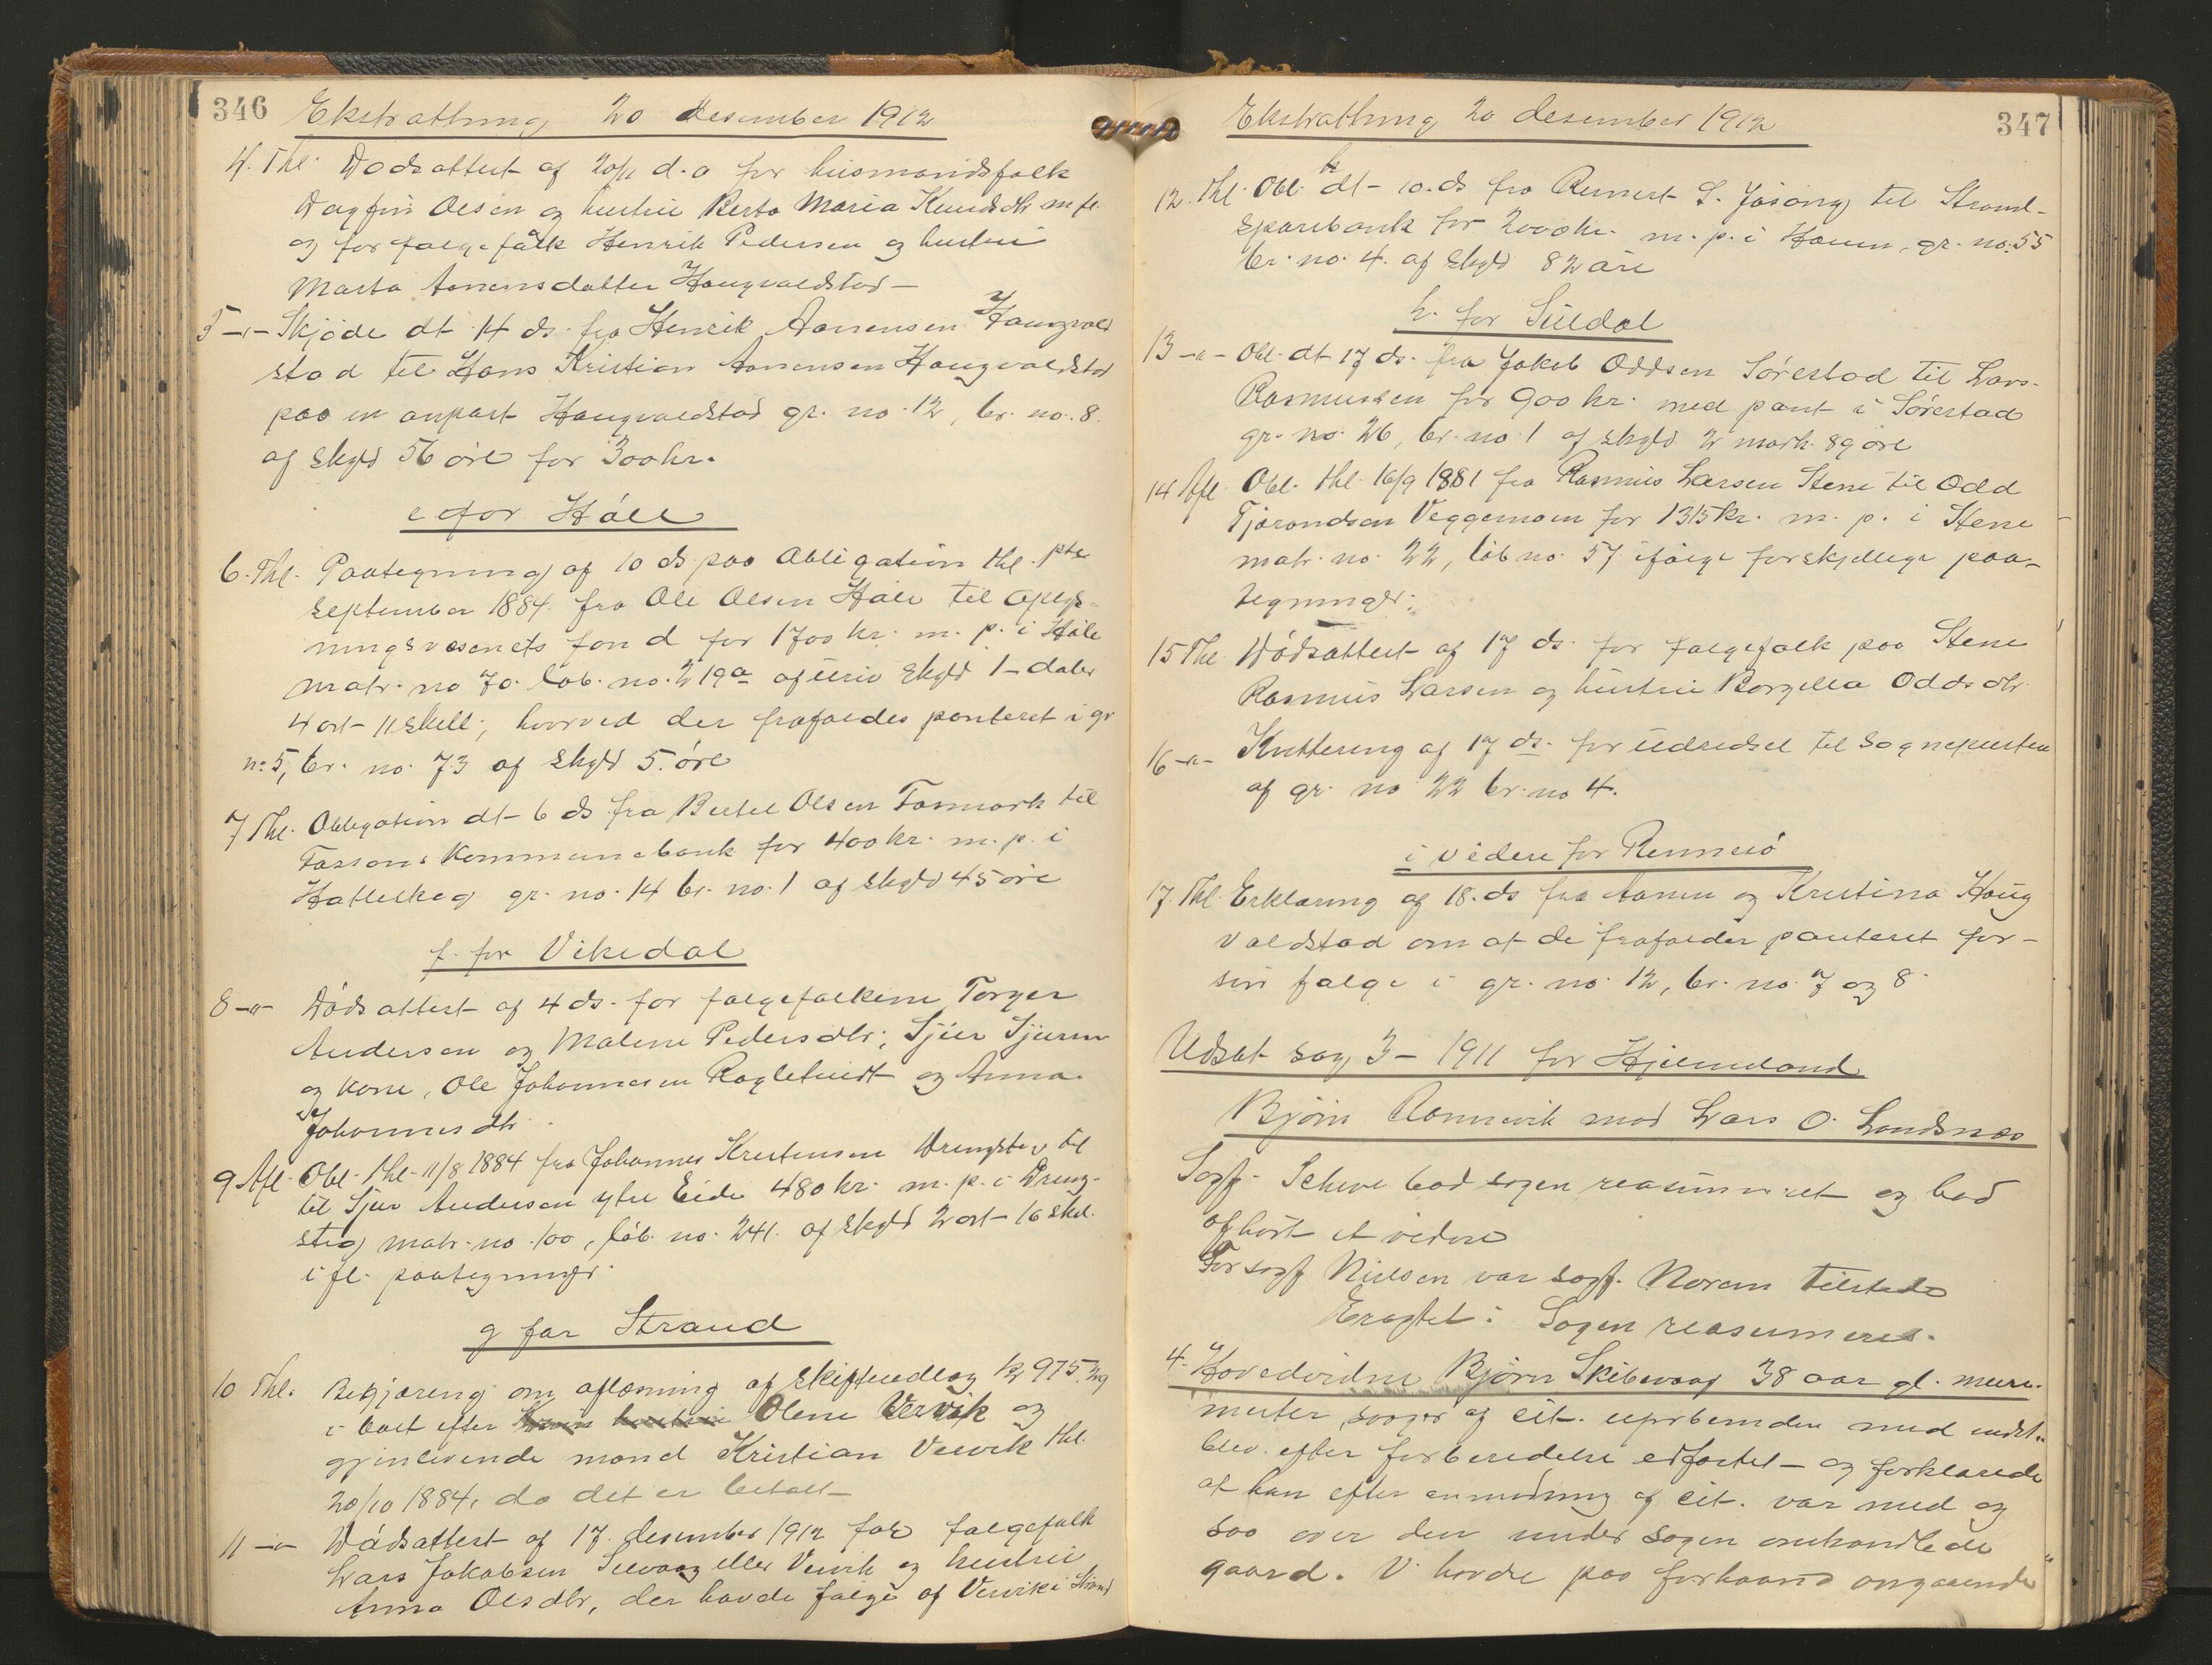 346
Ekstratting 20 desember 1912
4. Thl. Dødsattest af 20/11 d.a for husmandsfolk
Dagfin Olsen og hustru Berta Maria Knudsdtr m.fl.
og for følgefolk Henrik Pedersen og hustru
Marta Aanensdatter Haugvaldstad –
5 –"– Skjøde dt 14 ds. fra Henrik Aanensen Haugvald
stad til Hans Kristian Aanensen Haugvaldstad
paa en anpart Haugvaldstad gr. no. 12, br. no. 8
af skyld 56 øre for 300 kr.
e for Håle
6. Thl. Paategning af 10 ds paa Obligation thl. pte
september 1884 fra Ole Olsen Håle til oplys-
ningsvæsenets fond for 1700 kr. m. p. i Håle
matr. no 70. løb. no. 219a af uriv skyld 1 daler
4 ort 11 skill; hvorved der frafaldes panteret i gr
no 5, br. no. 73 af skyld 5. øre
7 Thl. Obligation dt 6 ds fra Bertel Olsen Tormork til
Fossans Kommunebank for 400 kr. m. p. i
Hatleskog gr. no. 14 br. no. 1 af skyld 45 øre
f. for Vikedal
8 –"– Dødsattest af 4 ds. for følgefolkene Torger
Andersen og Malene Pedersdtr; Sjur Sjursen
og kone, Ole Johannesen Ragletvedt og Anna
Johannesdtr.
9 Afl. Obl. thl. 11/8 1884 fra Johannes Kristensen Drengstig til
til Sjur Andersen ytre Eide 480 kr. m. p. i Dreng-
stig matr. no. 100, løb. no. 241. af skyld 2 ort 16 skil.
i fl. paategninger.
g for Strand
10 Thl. Begjæring om aflæsning af skifteudlæg kr 975.29
i boet efter Olene Vervik og
gjenlevende mand Kristian Vervik thl.
20/10 1884, da det er betalt
11 –"– Dødsattest af 17. desember 1912 for følgefolk
Lars Jakobsen eller Vervik og hustru
Anna Olsdtr, der havde følge af Vervik i Strand
347
Ekstratting 20 desember 1912
12. Thl. Obl. dt 10. ds fra Reinert S. Jøsang til Strand
Sparebank for 2000 kr. m. p. i Haven, gr. no. 55
br. no. 4. af skyld 82 øre
h. for Suldal
13 –"– Obl. dt 17 ds. fra Jakob Oddsen Sørestad til Lars
Rasmussen for 900 kr. med pant i Sørestad
gr. no. 26, br. no. 1 af skyld 2 mark 89 øre
14 Afl. Obl. thl. 16/9 1881 fra Rasmus Larsen Stene til Odd
Tjørandsen Veggemoen for 1315 kr. m. p. i Stene
matr. no. 22, løb no. 57 ifølge forskjellige paa-
tegninger.
15 Thl. Dødsattest af 17 ds. for følgefolk paa Stene
Rasmus Larsen og hustru Borgella Oddsdtr.
16 –"– Kvittering af 17 ds. for udredsel til sognepresten
af gr. no 22 br. no 4.
i videre for Rennesø
17. Thl. Erklæring af 18. ds fra Aanen og Kristina Haug
valdstad om at de frafalder panteret for
sin følge i gr. no. 12, br. no. 7 og 8.
Udsat sag 3 – 1911 for Hjelmeland
Bjørn Romsevik mod Lars O. Landsnes
Sagf. Scheve bad sagen reassumeret og bad
afhørt et vidne
For sagf Nielsen var sagf. Norem tilstede
Eragtet: Sagen reassumeres.
4. Hovedvidne Bjørn Skibevaag 38 aar gl. mur-
mester, svoger af cit. uforbemden med indst.
blev efter forberedelse edfæstet – og forklarede
at han efter anmodning af cit. var med og
saa over den under sagen omhandlede
gaard. Vi havde paa forhaand angaaende